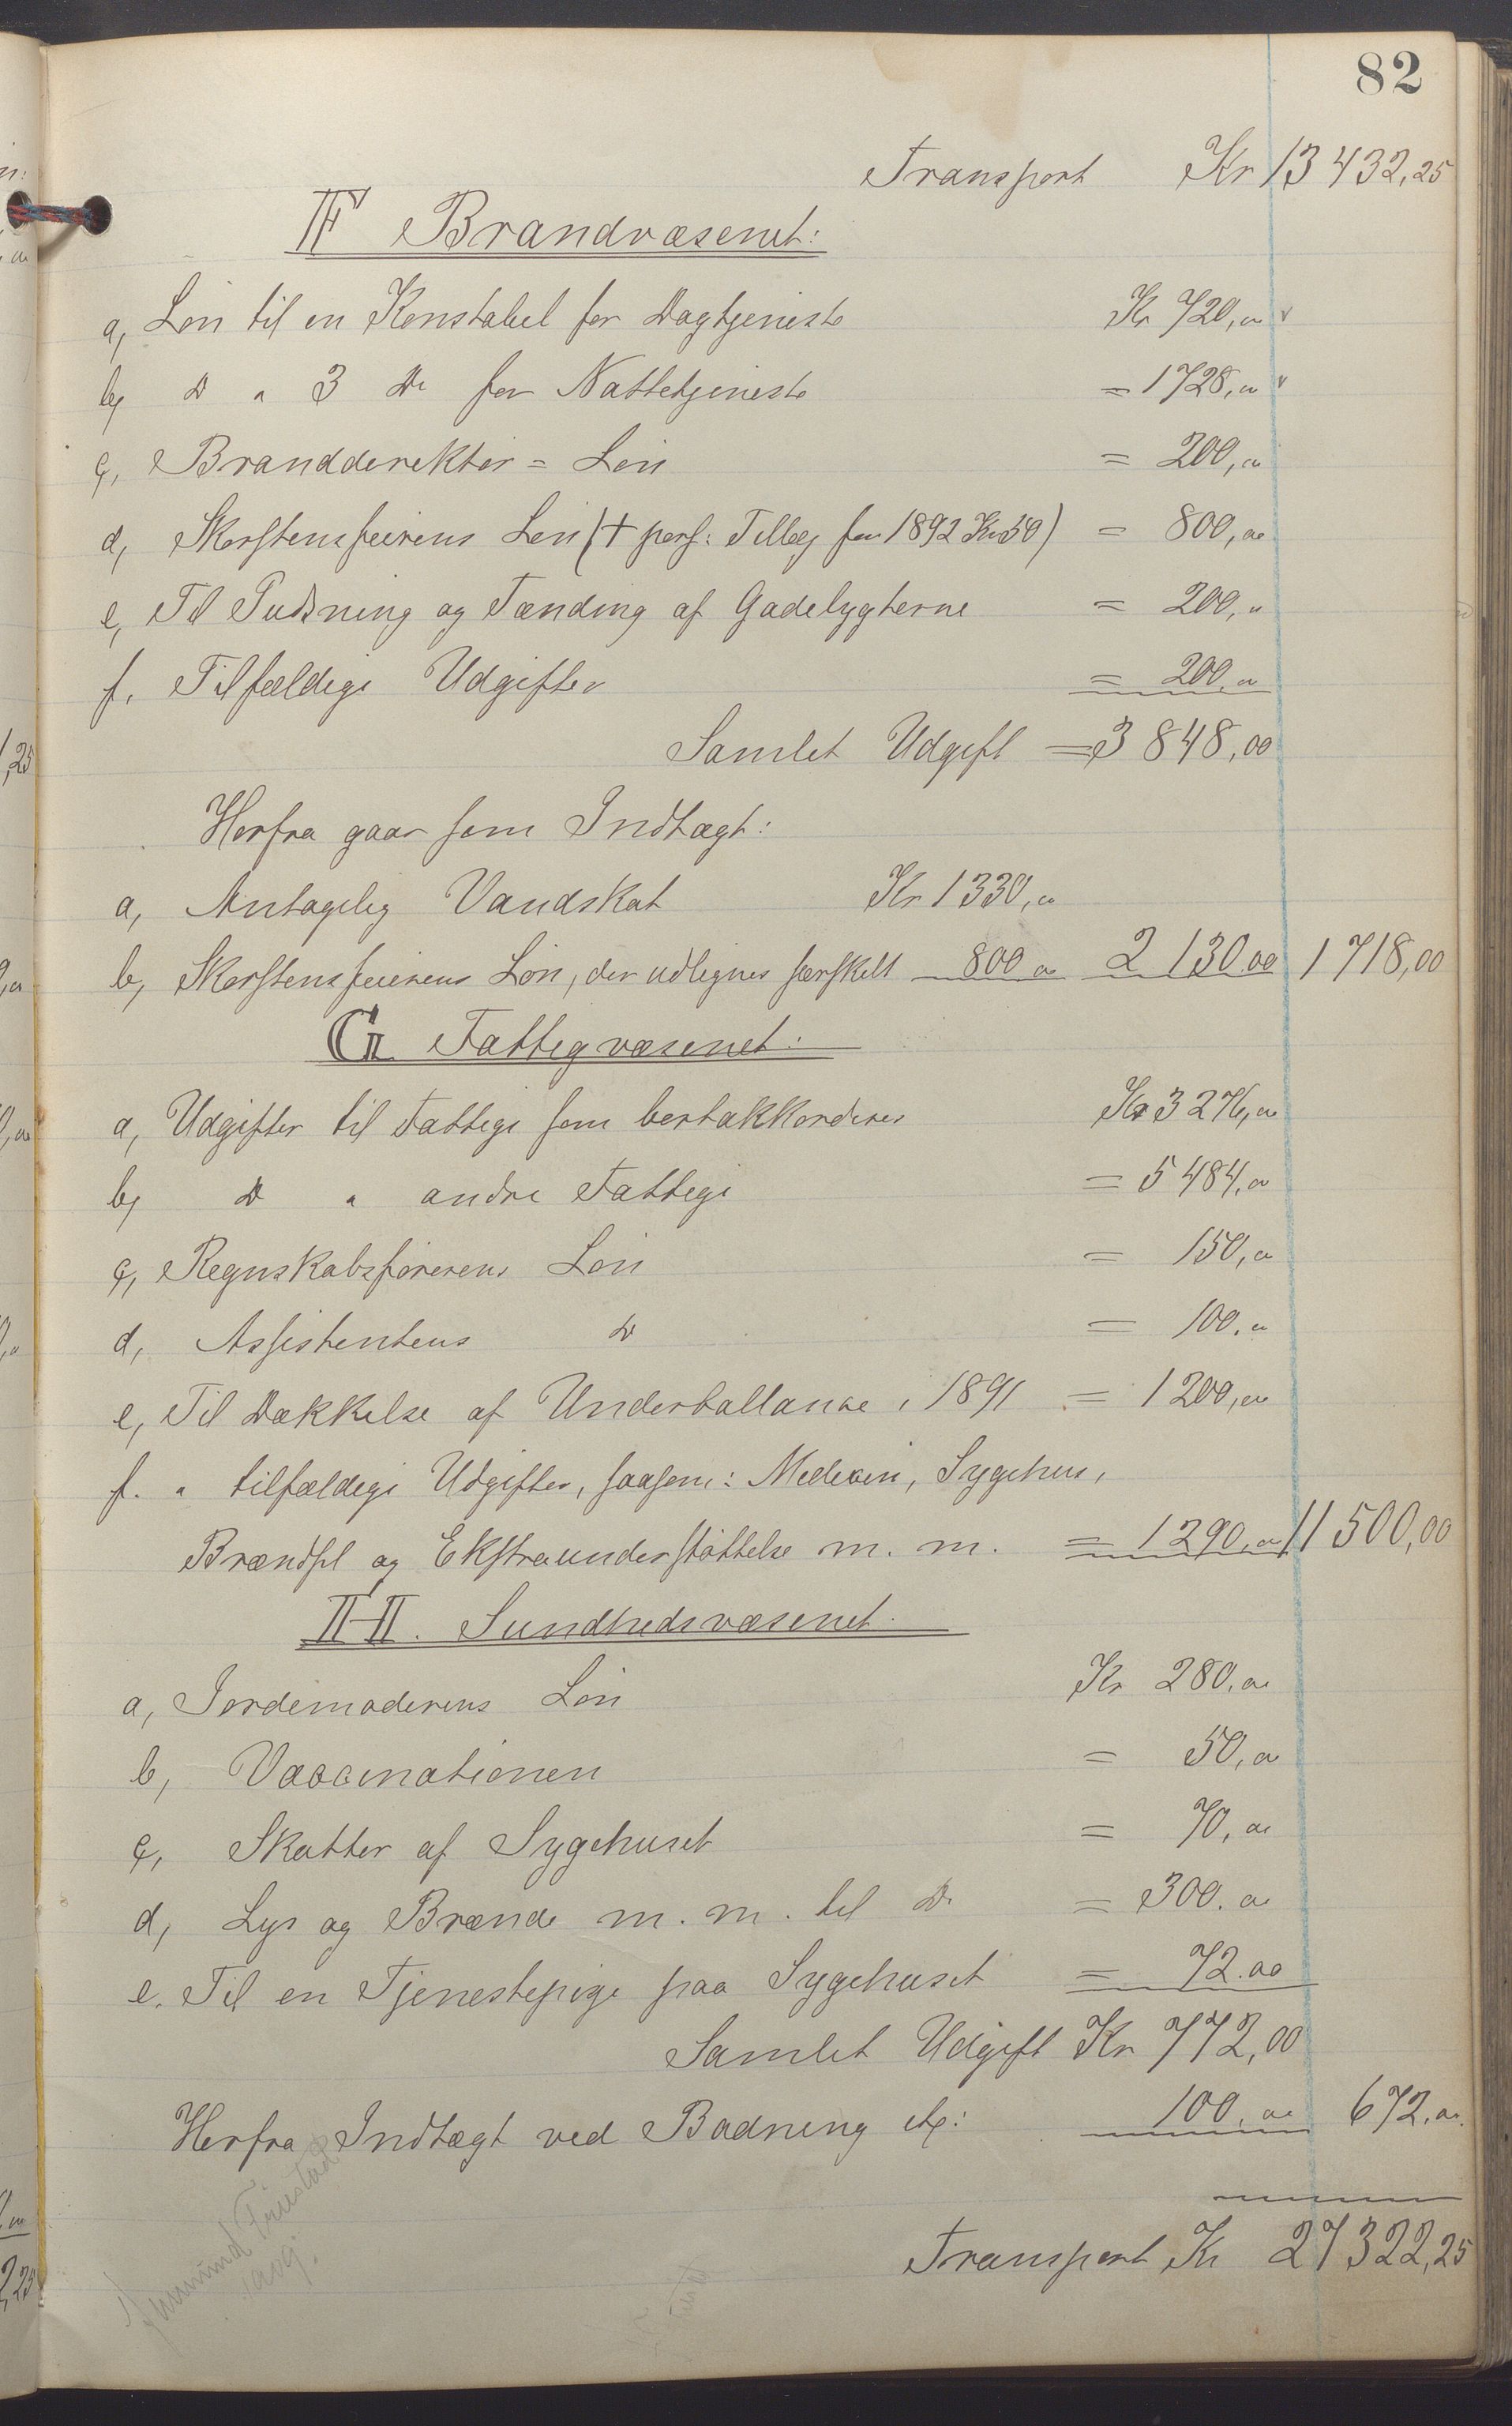 82
Transport Kr 13 432,25
F Brandvæsenet:
a, Løn til en Konstabel for Dagtjeneste Kr 720,00 v
b, Do " 3 Do for Nattetjeneste = 1728,00 v
c, Branddirektør = Løn = 200,00
d, Skorstensfeierens Løn (+ pers: Tillæg for 1892 Kr 50) = 800,00
e, Til Pudsning og Tænding af Gadelygterne = 200,"
f. Tilfældige Udgifter = 200,00
Samlet Udgift = 3 848,00
Herfra gaar som Indtægt:
a, Antagelig Vandskat Kr 1330,00
b, Skorstensfeierens Løn, der udlignes særskilt 800 00 2 130.00 1 718,00
G Fattigvæsenet:
a, Udgifter til Fattige som bortakkorderes Kr 3 276,00
b, Do " andre Fattige = 5 484,00
c, Regnskabsførerens Løn = 150,00
d, Assistentens Do = 100."
e, Til Dækkelse af Underballance i 1891 = 1 200,00
f. " tilfældige Udgifter, saasom: Medicin, Sygehus,
Brændsel og Ekstraunderstøttelse m. m. = 1 290,00 11 500,00
H. Sundhedsvæsenet.
a, Jordemoderens Løn Kr 280.00
b, Vaccinationen = 50,00
c, Skatter af Sygehuset = 70,00
d, Lys og Brænde m. m. til Do = 300.00
e. Til en Tjenestepige paa Sygehuset = 72.00
Samlet Udgift Kr 772,00
Herfra Indtægt ved Badning etc: 100,00 672.00
Transport Kr 27 322,25